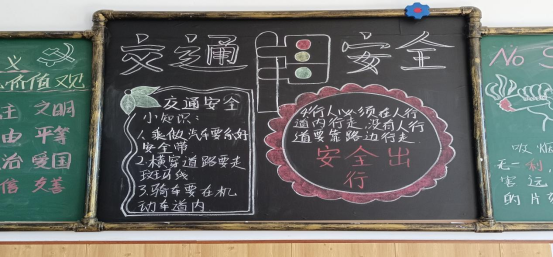 义
价值观
主 文明
由 平等
治 爱国
信 友善
交通安全
交通安全
小知识：
1.乘做汽车要系好
安全带
2.横穿道路要走
斑马线
3.骑车要在机
动车道内
4.行人必须在人行
道内行走,没有人行
道要靠路边行走
安全出
行
No S
吸烟
无一利,
害远
的片